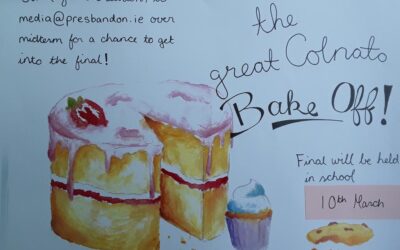 media@presbandon.ie over
midterm for a chance to get
into the final!
the
great Colnato
Bake Off!
Final will be held
in school
10th March